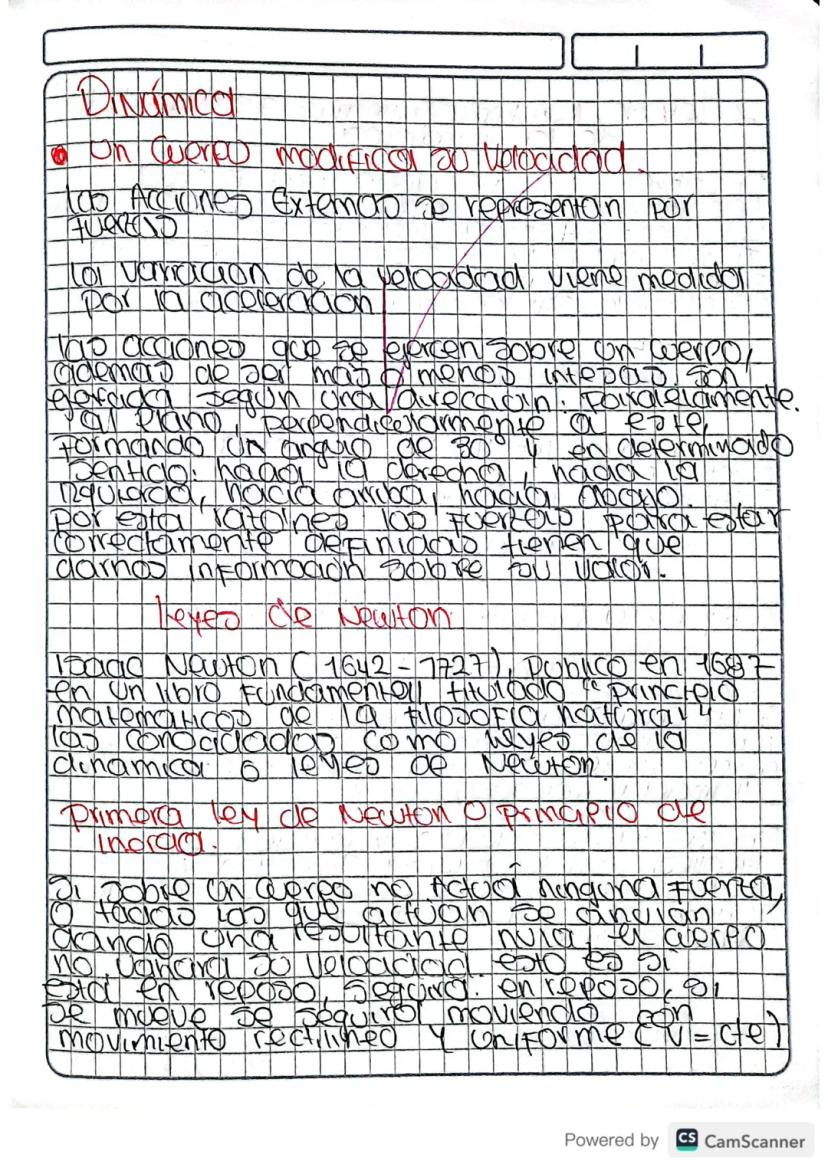 Dinámica
Un Cuerpo modifica su Velocidad.
las Acciones Externas se representan por
fuerzas
la variación de la velocidad viene medidor
por la aceleración
las acciones que se ejercen sobre un cuerpo,
ademas de ser mas o menos intesas. son
según una dirección: Paralelamente.
al Plano, perpendicularmente a este,
formando un angulo de 30° y en determinado
sentido: hacia la derecha, hacia la
izquierda, hacia arriba, hacia abajo.
por esta razones las fuerzas para estar
correctamente definidas tienen que
darnos información sobre su valor.
Leyes de Newton
Isaac Newton (1642-1727), publico en 1687
en un libro fundamental titulado "principio
matematicos de la filosofía natural"
las conocidadas como leyes de la
dinamica o leyes de Newton.
Primera ley de Newton o principio de
Inercia.
Si sobre un cuerpo no Actuá ninguna fuerza,
o todas las que actúan se cancelan
dando una resultante nula, el cuerpo
no variara su velocidad. esto es si
esta en reposo, seguira. en reposo, si
se mueve se seguira moviendo con
movimiento rectilineo y uniforme (v=cte)
Powered by CS CamScanner